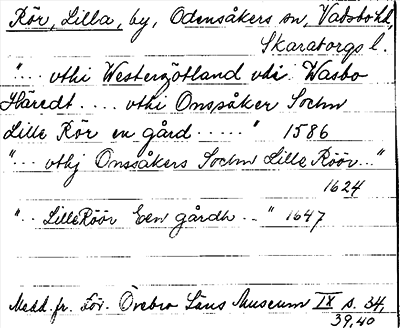 Rör, Lilla, by, Odensåkers sn, Vadsbo hd,
Skaraborgs l.
"... vthi Westergötland vthi Wasbo
Häredt .... vthi Onspåker Sochn
Lille Rör en gård ....." 1586
"... vthj Onssåkers Sochn Lille Röör..."
1624
".. Lille Röör Een gårdh ..." 1647
Medd. fr. För. Örebro Läns Museum IX s. 34,
39,40